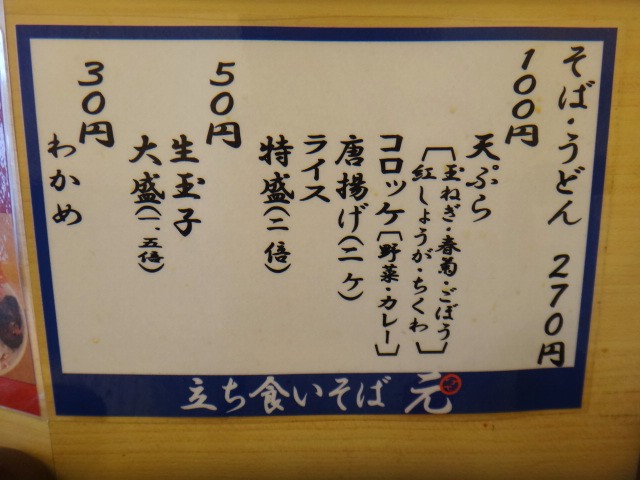 そば・うどん 270円
100円
天ぷら
〔玉ねぎ・春菊・ごぼう
紅しょうが・ちくわ〕
コロッケ〔野菜・カレー〕
唐揚げ(二ケ)
ライス
特盛(二倍)
50円
生玉子
大盛(一、五倍)
30円
わかめ
立ち食いそば 元